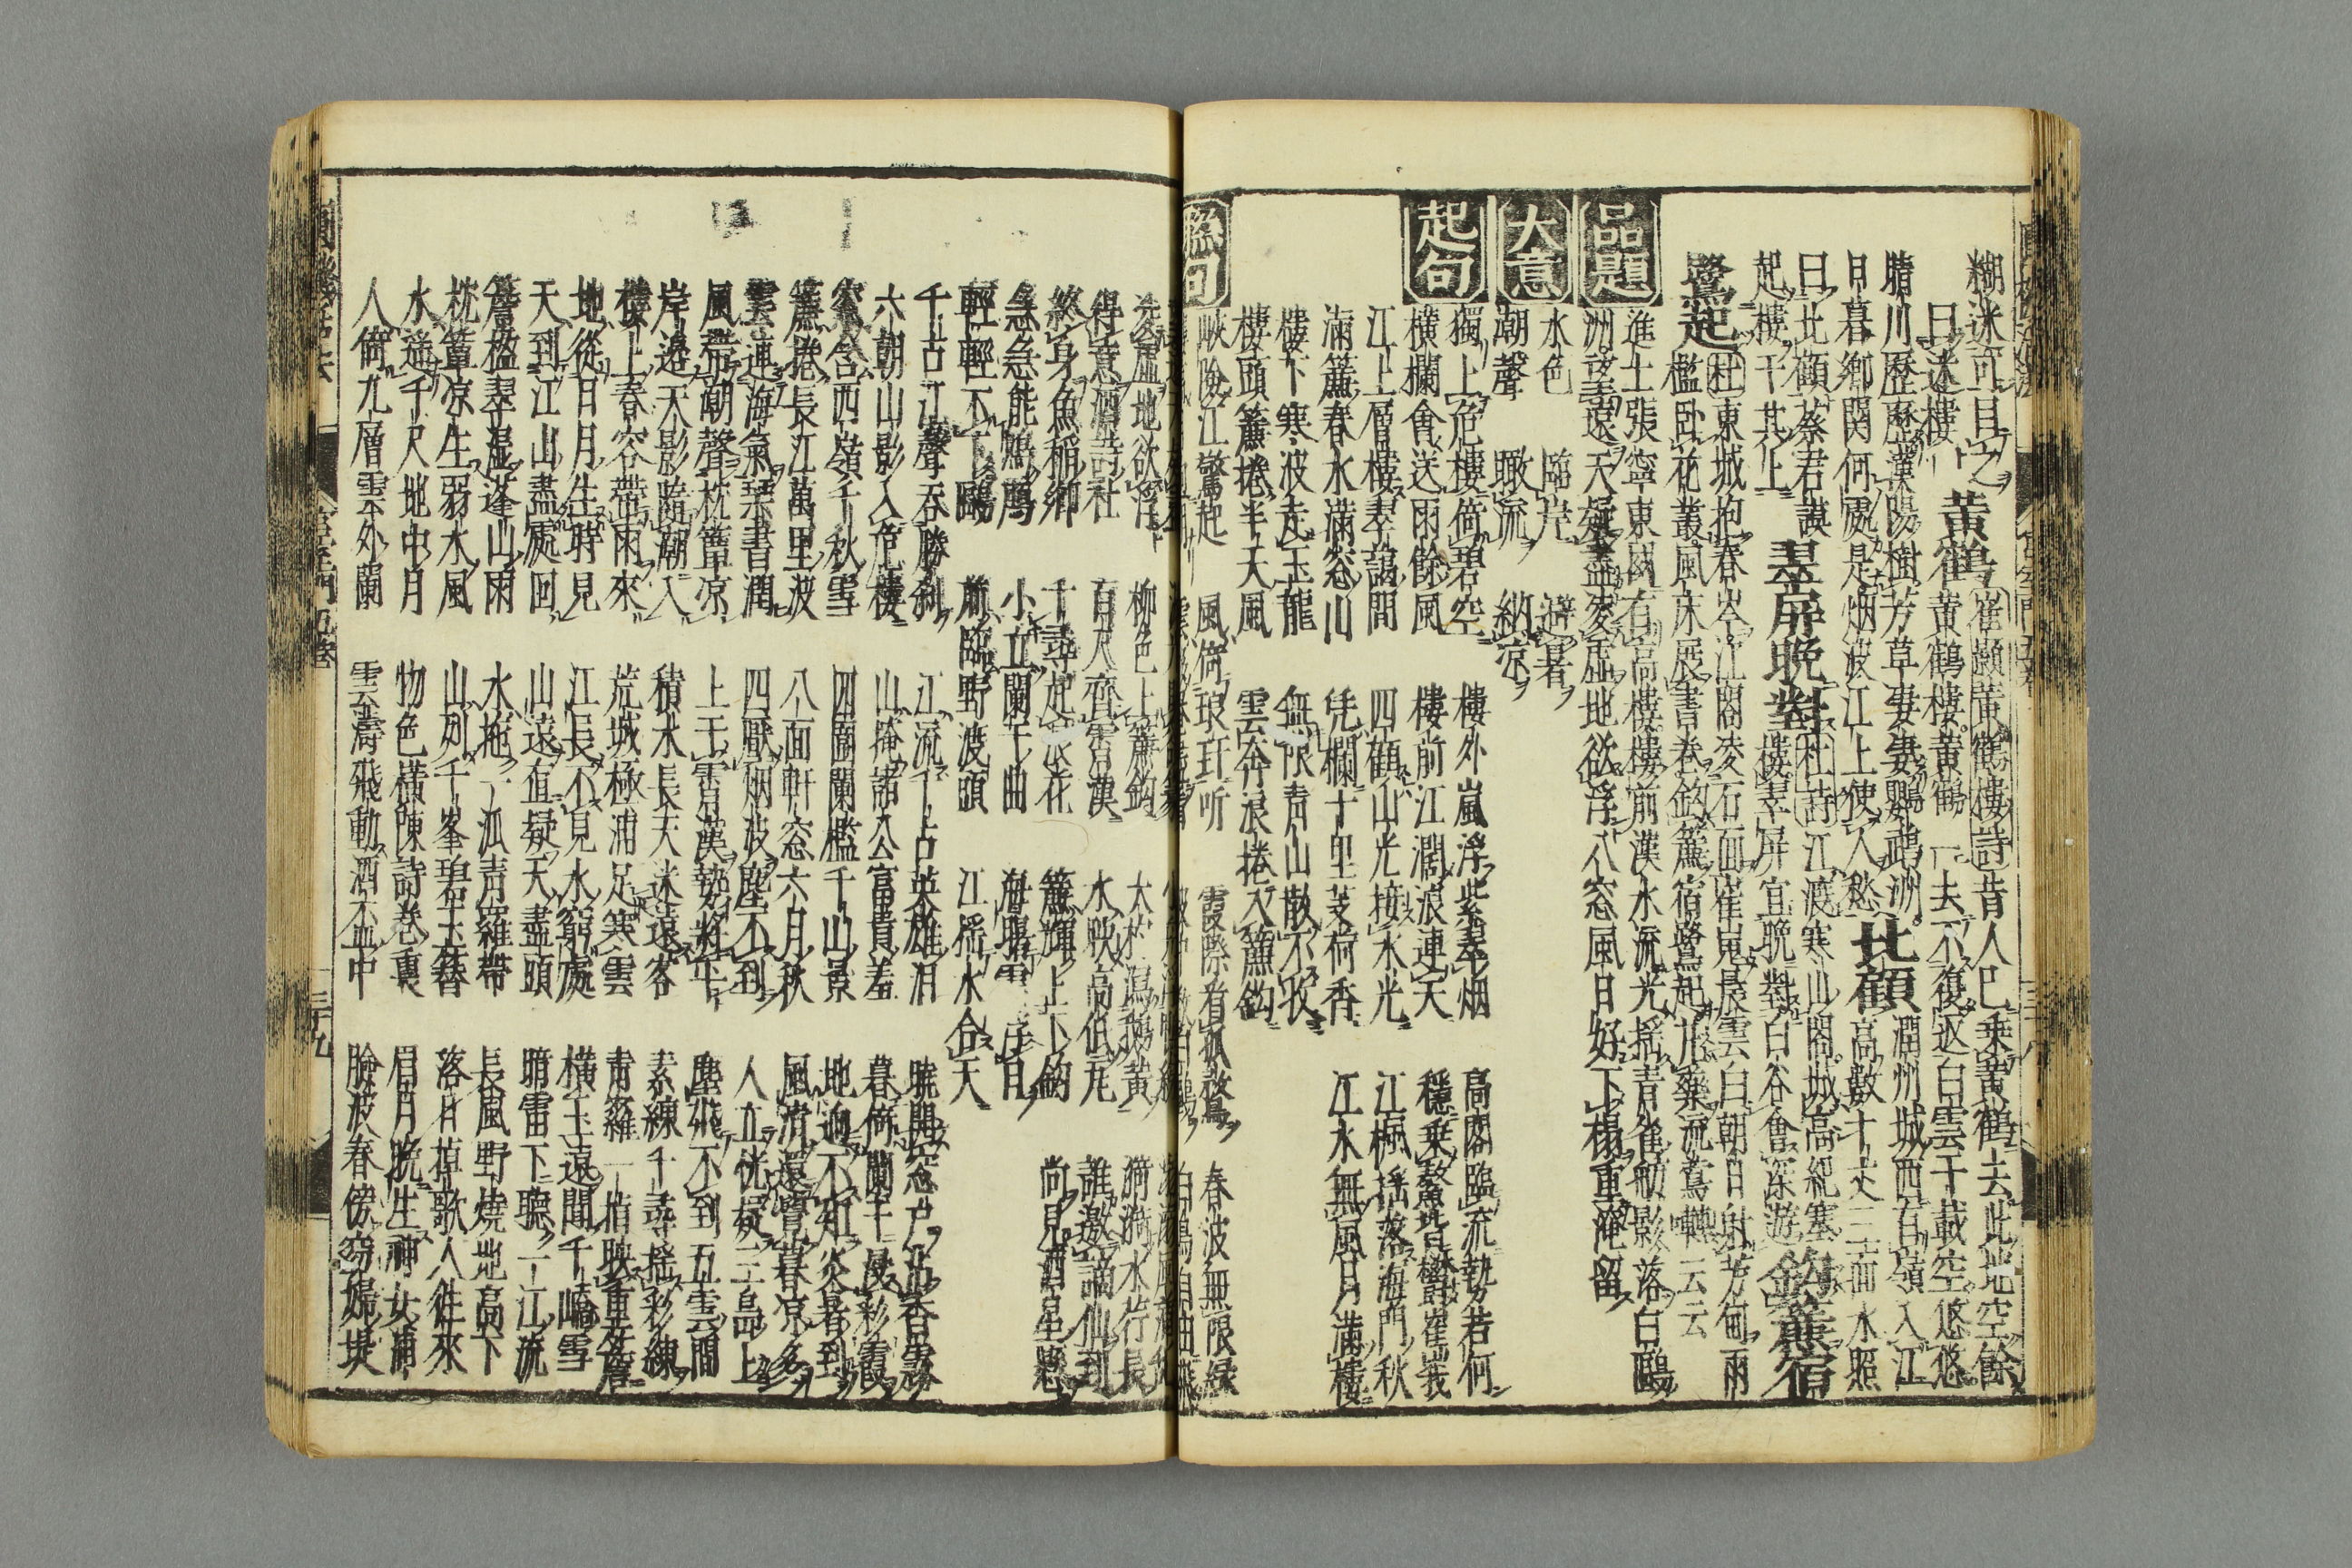 糊迷可目之
曰迷樓 黄鶴 崔顥黄鶴樓詩昔人已乗黄鶴去此地空餘
黄鶴樓黄鶴一去不復返白雲千載空悠悠
晴川歴歴漢陽樹芳草萋萋鸚鵡洲
日暮郷関何處是烟波江上使人愁 北顧 潤州城西有嶺入江
高數十丈三面水照
曰北顧蔡君謨
起樓于其上 翠屏晩對 杜詩江渡寒山閣城高絶塞
樓翠屏宜晩對白谷會深游 鈎簾宿
鷺起 杜東城抱春岑江閣凌石面崔嵬晨雲白朝日射芳甸雨
檻臥花叢風床展書巻鈎簾宿鷺起丸藥流鶯囀云云
品題
進士張寧東國有高樓樓前漢水流光揺青雀舫影落白鷗
洲望遠天疑盡凌虚地欲浮八窓風日好下榻重淹留
大意
水色 臨岸 避暑
潮聲 瞰流 納凉
起句
獨上危樓倚碧空 樓外嵐浮紫翠烟 高閣臨流勢若何
横欄會送雨餘風 樓前江濶浪連天 穏乗鰲背欝崔峩
江上層樓翠藹間 四顧山光接水光 江楓揺落海門秋
滿簾春水滿窓山 凭欄十里芰荷香 江水無風月滿樓
樓下寒波走玉龍 無限青山散不收
樓頭簾捲半天風 雲奔浪捲入簾鈎
聯句
峽險江驚起 風倚琅玕听 霞際看孤鶩 春波無限緑
凌虚地欲浮 柳色上簾鈎
得意酒詩社 百尺齊霄漢 水映高低尾 誰邀謫仙到
終身魚稲郷 十尋起浪花 簾輝上下鈎 尚見酒星懸
急急能鷹 小立闌干曲
輕輕不下鷗 頻臨野渡頭 江揺水合天
千古江聲呑勝刹 江流千古英雄泪 曉開窓戸香露
六朝山影入危樓 山掩諸公富貴羞 暮倚闌干漫彩霞
窓含西嶺千秋雪 四圍闌檻千山景 地迥不知炎暑到
簾捲長江萬里波 八面軒窓六月秋 風清還覺暮凉多
雲連海氣琴書潤 四厭烟波塵不到 人立恍疑三島上
風帶潮聲枕簟凉 上干霄漢勢將平 塵飛不到五雲間
岸邊天影隨潮入 積水長天迷遠客 素練千尋揺彩練
樓上春容帶雨來 荒城極浦足寒雲 青羅一指映重簷
地從日月生時見 江長不見水窮處 横玉遠聞千嶠雪
天到江山盡處回 山遠直疑天盡頭 暗雷下聽一江流
簷楹翠湿蓬山雨 水拖一派青羅帶 長風野燒地高下
枕簟凉生弱水風 山列千峯碧玉簪 落日棹歌人往來
水遊千尺地中月 物色横陳詩巻裏 眉月晩生神女浦
人倚九層雲外闌 雲濤飛動酒盃中 臉波春傍窈娘堤